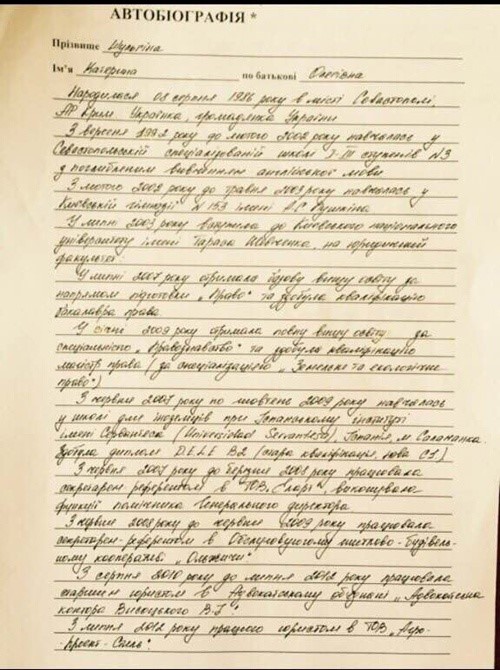 АВТОБІОГРАФІЯ *
Прізвище Шулькіна
Ім'я Катерина по батькові Олегівна
Народилася 08 серпня 1986 року в місті Севастополі,
АР Крим Україна, громадянка України
З вересня 1992 року до лютого 2002 року навчалась у
Севастопольській спеціалізованій школі I-III ступенів N3
з поглибленим вивченням англійської мови
З лютого 2002 року до травня 2003 року навчалась у
Київській гімназії №153 імені А.С. Пушкіна
У липні 2003 року вступила до Київського національного
університету імені Тараса Шевченка, на юридичний
факультет.
У липні 2007 року отримала базову вищу освіту за
напрямом підготовки „Право" та здобула кваліфікацію
бакалавра права
У січні 2009 року отримала повну вищу освіту за
спеціальністю „Правознавство" та здобула кваліфікацію
магістр права (за спеціалізацією „Земельне та екологічне
право")
З червня 2007 року по жовтень 2009 року навчалась
у школі для іноземців при Іспанському інституті
імені Сервантеса (Universidad Servantesa), Іспанія, м Саламанка.
Здобула диплом DELE B2 (стара кваліфікація, нова C1)
З червня 2007 року до березня 2008 року працювала
секретарем референтом в ТОВ, виконувала
функції помічника Генерального директора
З червня 2008 року до червня 2009 року працювала
секретарем-референтом в Обслуговуючому житлово-будівель-
ному кооперативі „Ольжичі"
З серпня 2010 року до липня 2012 року працювала
старшим юристом в Адвокатському об'єднанні „Адвокатська
контора Висоцького В.Г."
З липня 2012 року працюю юристом в ТОВ „Агро-
Проект-Стиль".